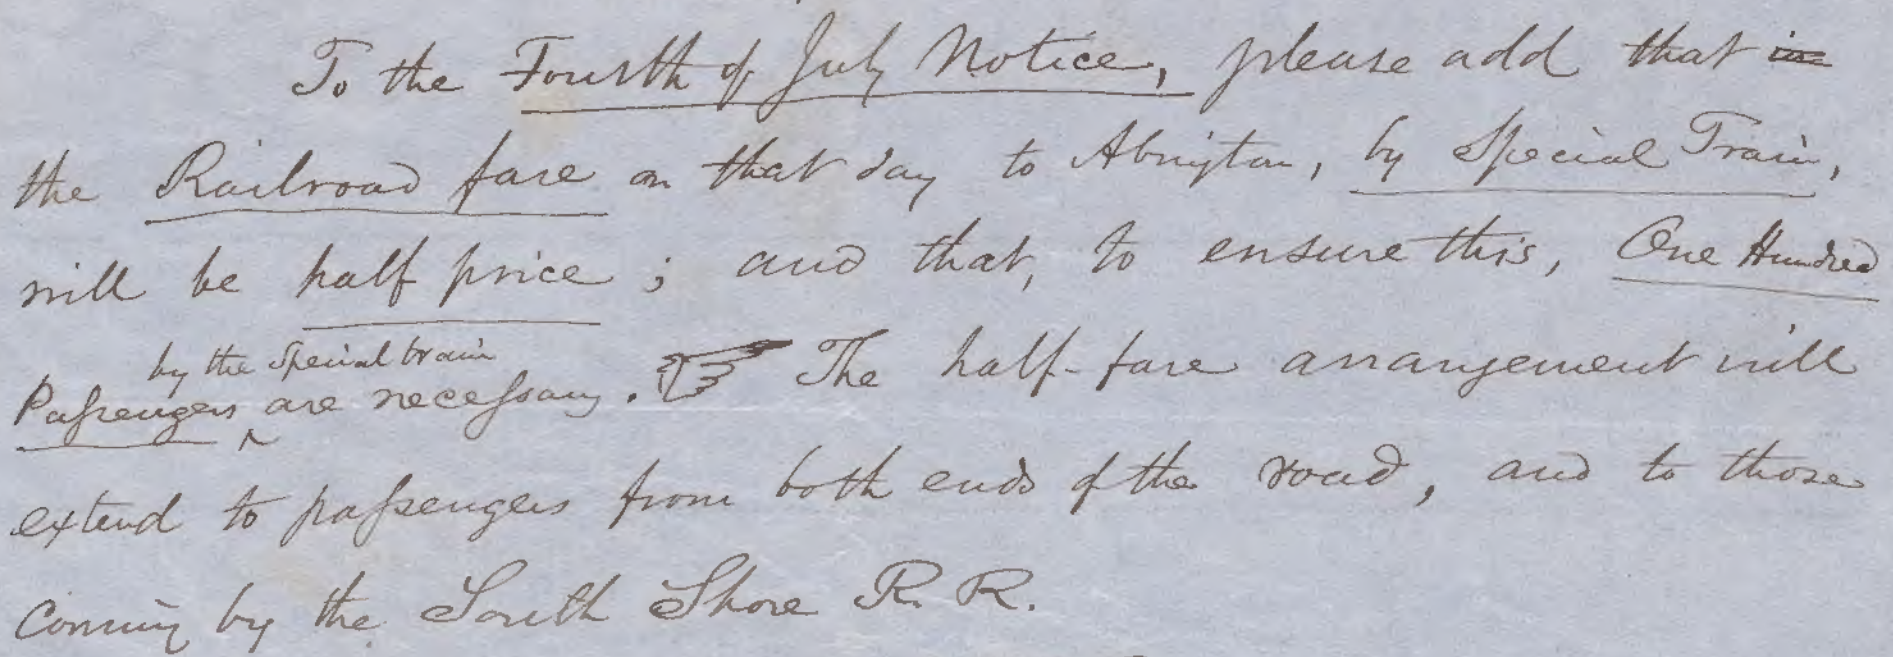 To the Fourth of July Notice, please add that in
the Railroad fare on that day to Abington, by Special Train,
will be half price; and that, to ensure this, One Hundred
by the Special train
Passengers ^ are necessary. ☞ The half-fare arrangement will
extend to passengers from both ends of the road, and to those
coming by the South Shore R. R.